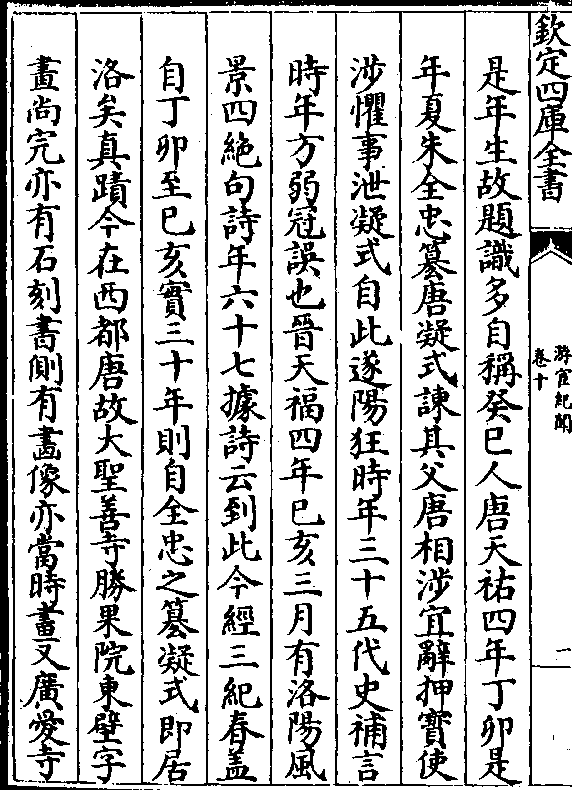 欽定四庫全書
游宦紀聞
卷十
一
是年生故題識多自稱癸巳人唐天祐四年丁卯是
年夏朱全忠簒唐凝式諫其父唐相涉宜辭押寶使
涉懼事泄凝式自此遂陽狂時年三十五代史補言
時年方弱冠誤也晉天福四年己亥三月有洛陽風
景四絶句詩年六十七據詩云到此今經三紀春蓋
自丁卯至己亥實三十年則自全忠之簒凝式即居
洛矣真蹟今在西都唐故大聖善寺勝果院東壁字
畫尚完亦有石刻書側有畫像亦當時畫又廣愛寺